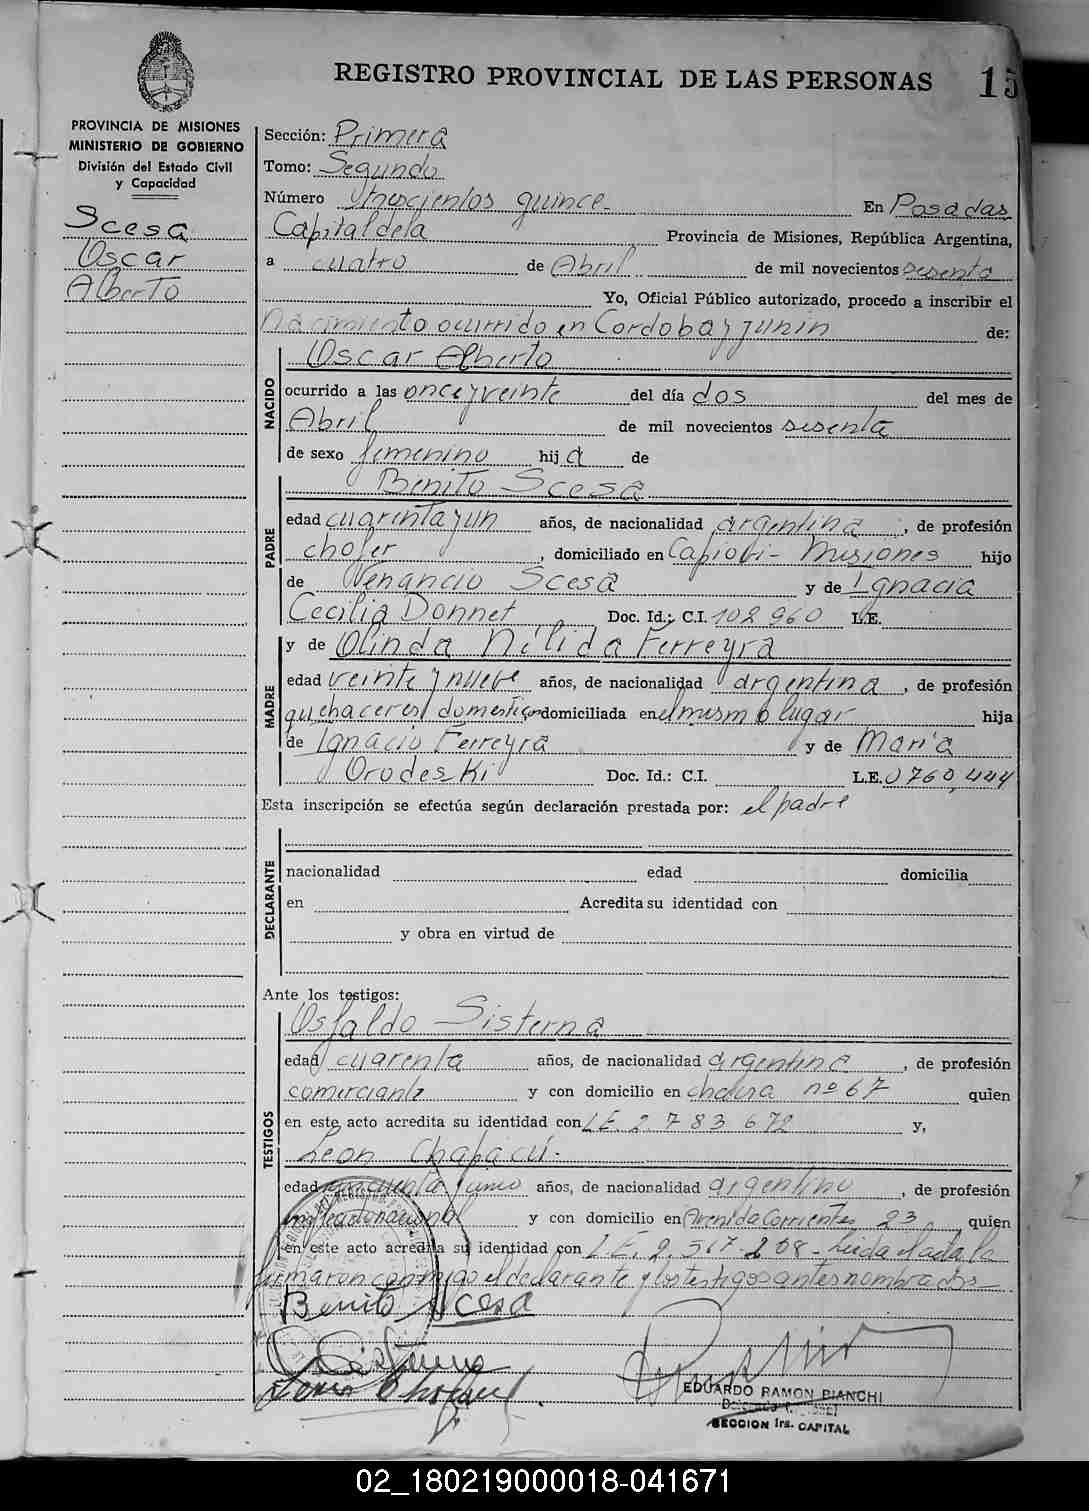 REGISTRO PROVINCIAL DE LAS PERSONAS 15
PROVINCIA DE MISIONES
MINISTERIO DE GOBIERNO
División del Estado Civil
y Capacidad
Scesa
Oscar
Alberto
Sección: Primera
Tomo: Segundo
Número trescientos quince En Posadas
Capital de la Provincia de Misiones, República Argentina,
a cuatro de Abril de mil novecientos sesenta
Yo, Oficial Público autorizado, procedo a inscribir el
Nacimiento ocurrido en Cordoba y Junin de:
NACIDO
Oscar Alberto
ocurrido a las once y veinte del día dos del mes de
Abril de mil novecientos sesenta
de sexo femenino hija de
Benito Scesa
PADRE
edad cuarenta y un años, de nacionalidad argentina, de profesión
chofer, domiciliado en Capiovi - Misiones hijo
de Venancio Scesa y de Ignacia
Cecilia Donnet Doc. Id.: C.I. 102960 L.E.
y de Olinda Nélida Ferreyra
MADRE
edad veinte y nueve años, de nacionalidad argentina, de profesión
quehaceres domesticos domiciliada en el mismo lugar hija
de Ignacio Ferreyra y de Maria
Orodeski Doc. Id.: C.I. L.E. 0760,444
Esta inscripción se efectúa según declaración prestada por: el padre
DECLARANTE
nacionalidad edad domicilia
en Acredita su identidad con
y obra en virtud de
Ante los testigos:
TESTIGOS
Osfaldo Sisterna
edad cuarenta años, de nacionalidad argentina, de profesión
comerciante y con domicilio en chacra nº 67 quien
en este acto acredita su identidad con L.E. 2.783.672 y,
Leon Chapacú.
edad cincuenta y años, de nacionalidad argentino, de profesión
y con domicilio en Avenida Corrientes 23, quien
en este acto acredita su identidad con L.E. 2.517.208 - Leida el acta la
firmaron conmigo el declarante y los testigos antes nombrados -
Benito Scesa
EDUARDO RAMON BIANCHI
SECCION 1ra. CAPITAL
02_180219000018-041671